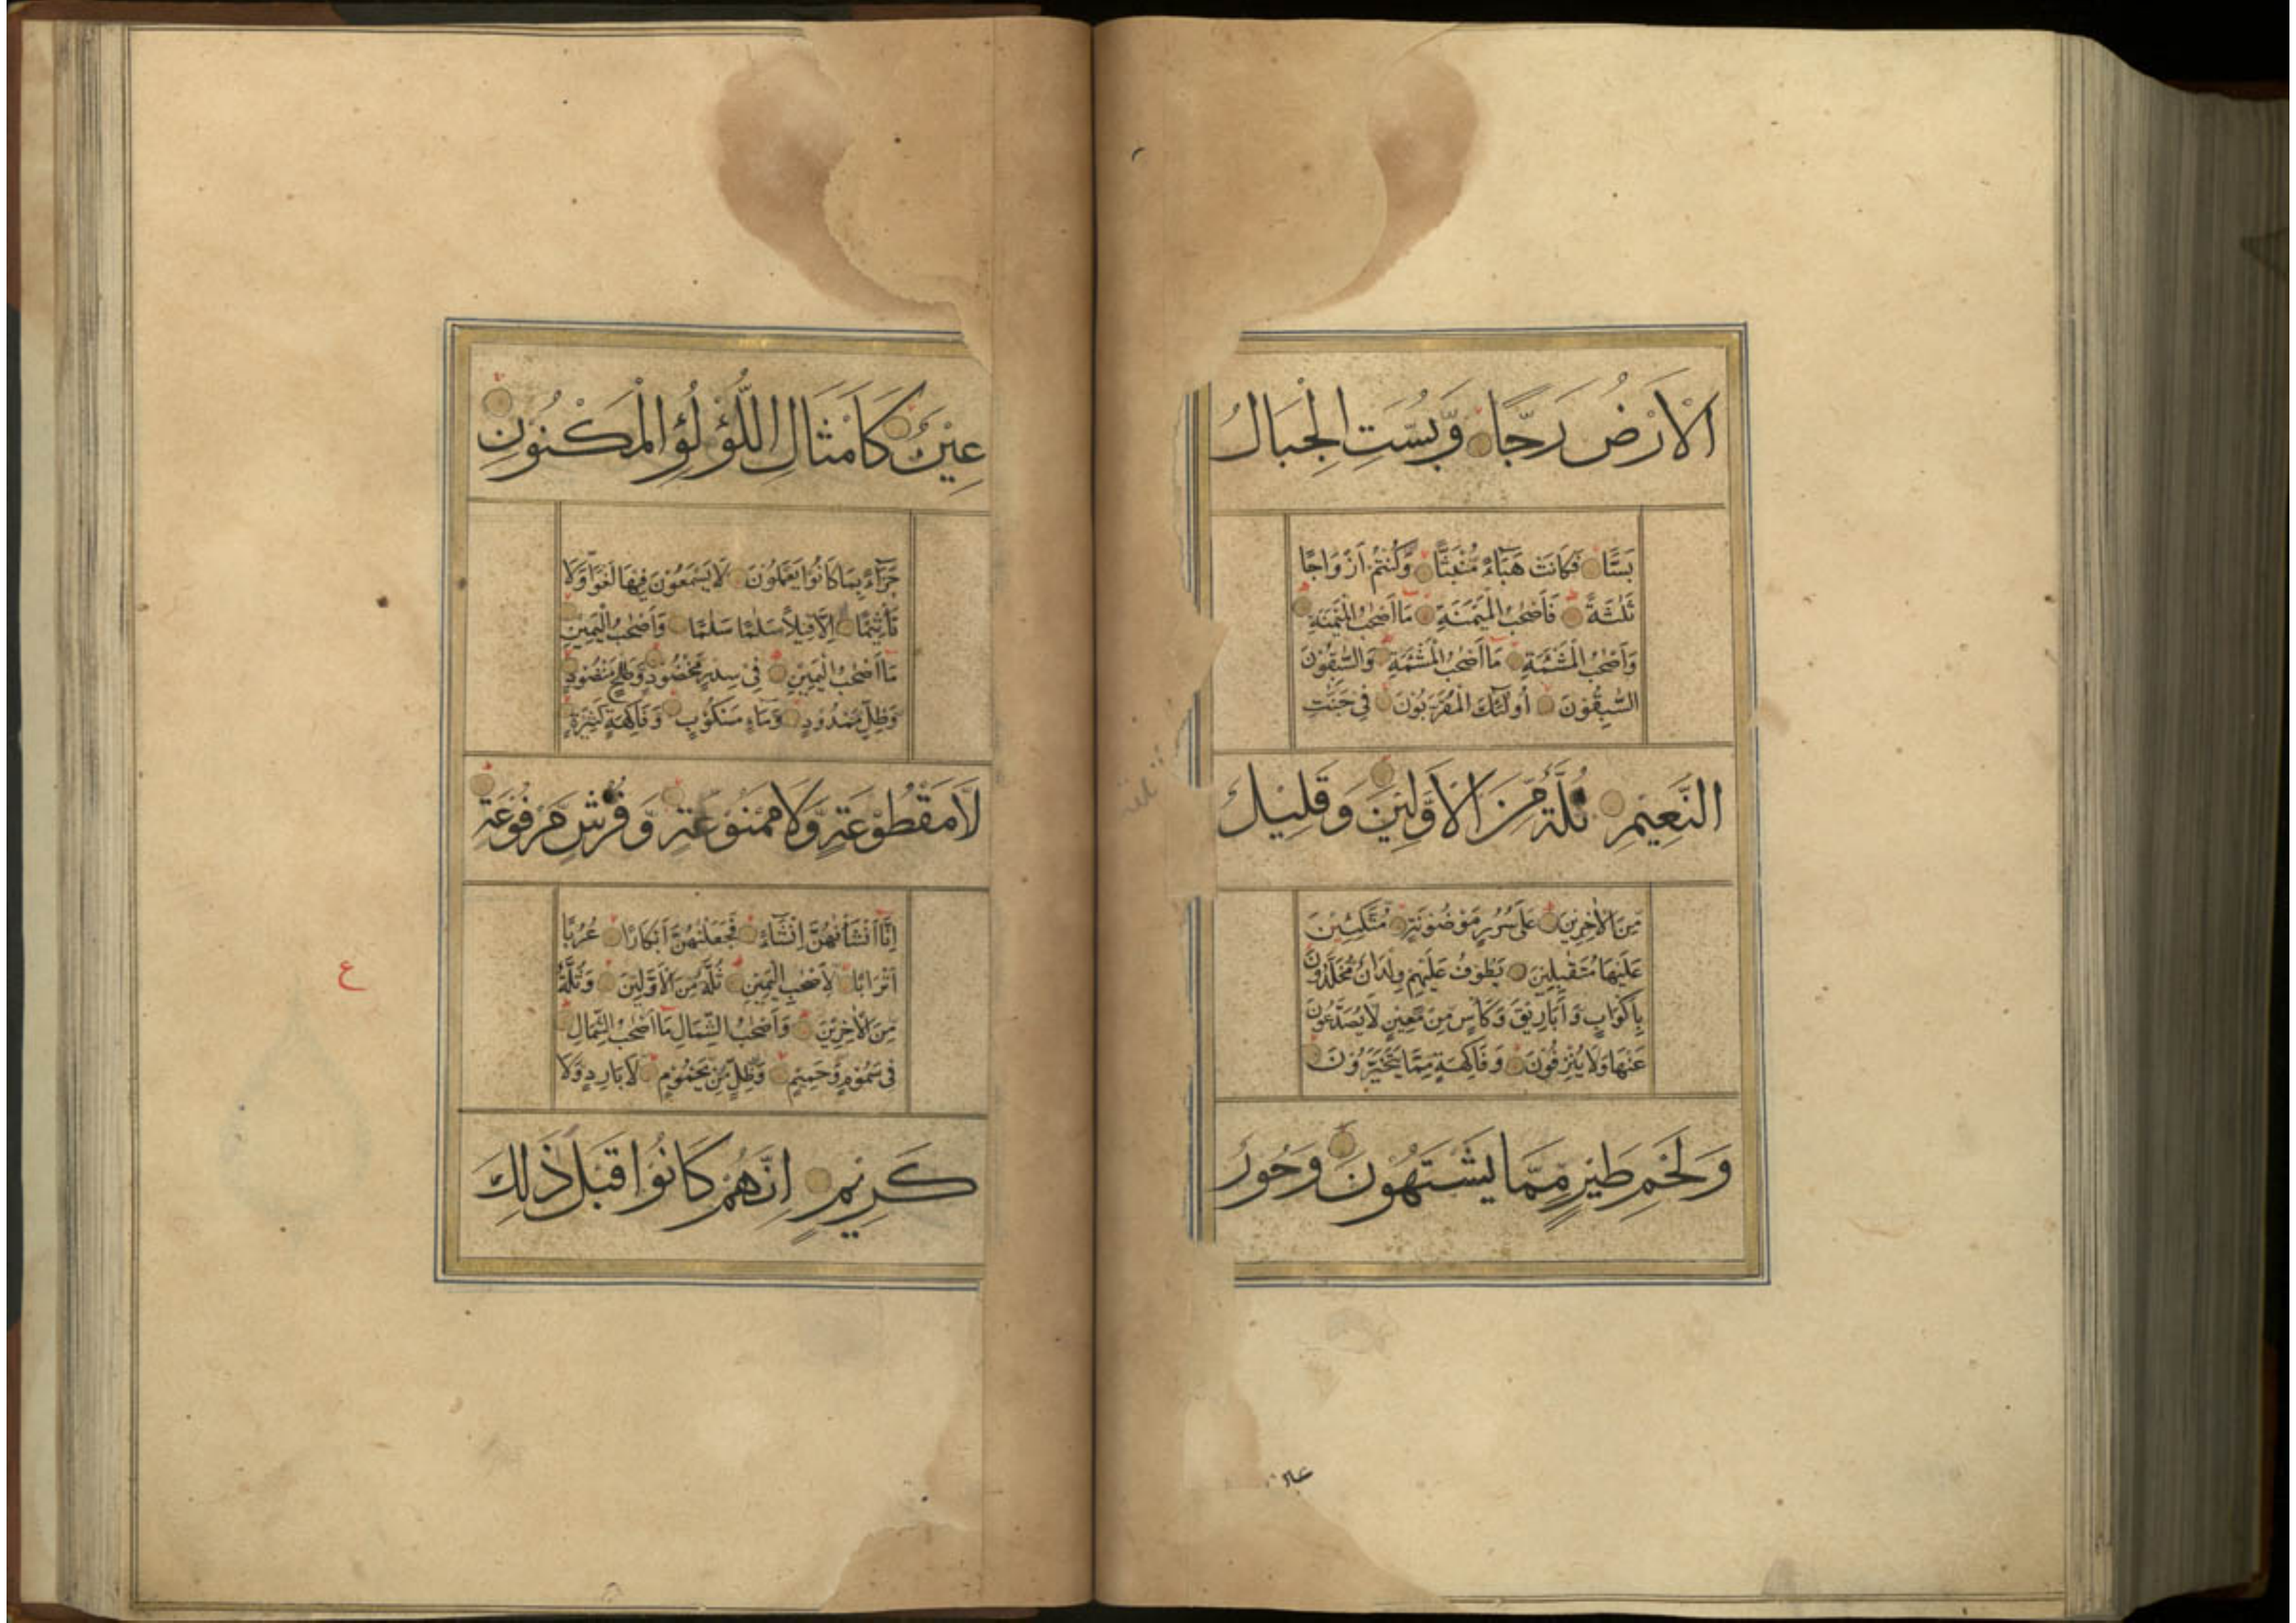 الْاَرْضُ رَجًّا وَّبُسَّتِ الْجِبَالُ
بَسًّا فَكَانَتْ هَبَآءً مُّنْبَثًّا وَّكُنْتُمْ اَزْوَاجًا
ثَلٰثَةً فَاَصْحٰبُ الْمَيْمَنَةِ مَا اَصْحٰبُ الْمَيْمَنَةِ
وَاَصْحٰبُ الْمَشْئَمَةِ مَا اَصْحٰبُ الْمَشْئَمَةِ وَالسّٰبِقُوْنَ
السّٰبِقُوْنَ اُولٰٓئِكَ الْمُقَرَّبُوْنَ فِيْ جَنّٰتِ
النَّعِيْمِ ثُلَّةٌ مِّنَ الْاَوَّلِيْنَ وَقَلِيْلٌ
مِّنَ الْاٰخِرِيْنَ عَلٰى سُرُرٍ مَوْضُوْنَةٍ مُّتَّكِـِٕيْنَ
عَلَيْهَا مُتَقٰبِلِيْنَ يَطُوْفُ عَلَيْهِمْ وِلْدَانٌ مُّخَلَّدُوْنَ
بِاَكْوَابٍ وَّاَبَارِيْقَ وَكَاْسٍ مِنْ مَّعِيْنٍ لَا يُصَدَّعُوْنَ
عَنْهَا وَلَا يُنْزِفُوْنَ وَفَاكِهَةٍ مِمَّا يَتَخَيَّرُوْنَ
وَلَحْمِ طَيْرٍ مِّمَّا يَشْتَهُوْنَ وَحُوْرٌ
عِيْنٌ كَاَمْثَالِ اللُّؤْلُؤِ الْمَكْنُوْنِ
جَزَآءً بِمَا كَانُوْا يَعْمَلُوْنَ لَا يَسْمَعُوْنَ فِيْهَا لَغْوًا وَّلَا
تَاْثِيْمًا اِلَّا قِيْلًا سَلٰمًا سَلٰمًا وَاَصْحٰبُ الْيَمِيْنِ
مَا اَصْحٰبُ الْيَمِيْنِ فِيْ سِدْرٍ مَّخْضُوْدٍ وَّطَلْحٍ مَنْضُوْدٍ
وَظِلٍّ مَّمْدُوْدٍ وَّمَآءٍ مَسْكُوْبٍ وَفَاكِهَةٍ كَثِيْرَةٍ
لَّا مَقْطُوْعَةٍ وَّلَا مَمْنُوْعَةٍ وَّفُرُشٍ مَّرْفُوْعَةٍ
اِنَّا اَنْشَاْنٰهُنَّ اِنْشَآءً فَجَعَلْنٰهُنَّ اَبْكَارًا عُرُبًا
اَتْرَابًا لِاَصْحٰبِ الْيَمِيْنِ ثُلَّةٌ مِّنَ الْاَوَّلِيْنَ وَثُلَّةٌ
مِنَ الْاٰخِرِيْنَ وَاَصْحٰبُ الشِّمَالِ مَا اَصْحٰبُ الشِّمَالِ
فِيْ سَمُوْمٍ وَّحَمِيْمٍ وَّظِلٍّ مِّنْ يَحْمُوْمٍ لَا بَارِدٍ وَّلَا
كَرِيْمٍ اِنَّهُمْ كَانُوْا قَبْلَ ذٰلِكَ
ع